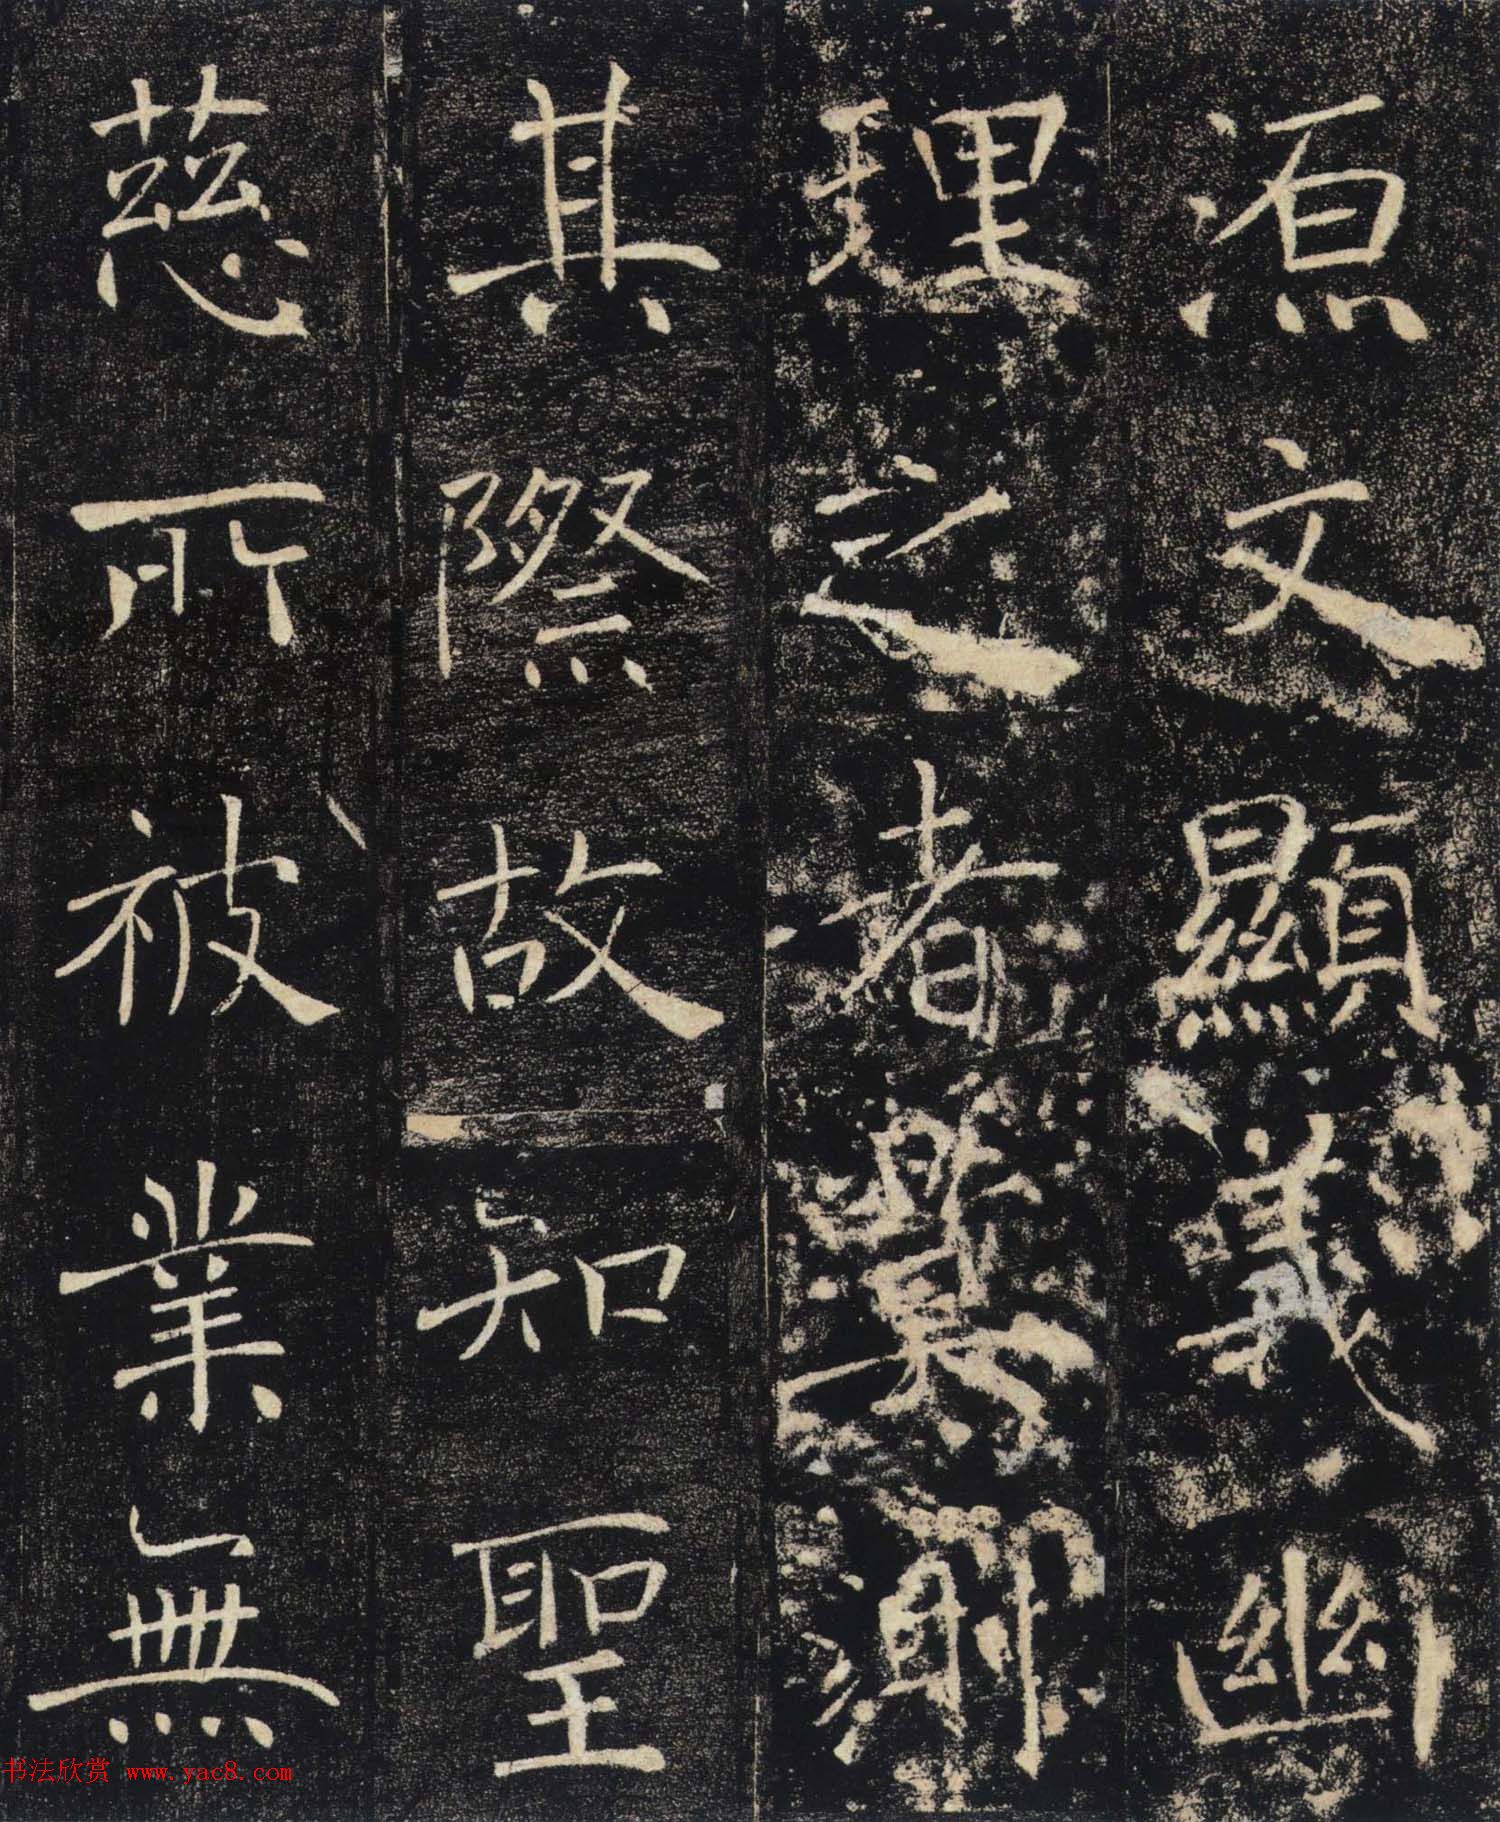 源文顯義幽
理之者罕測
其際故知聖
慈所被業無
书法欣赏 www.yac8.com